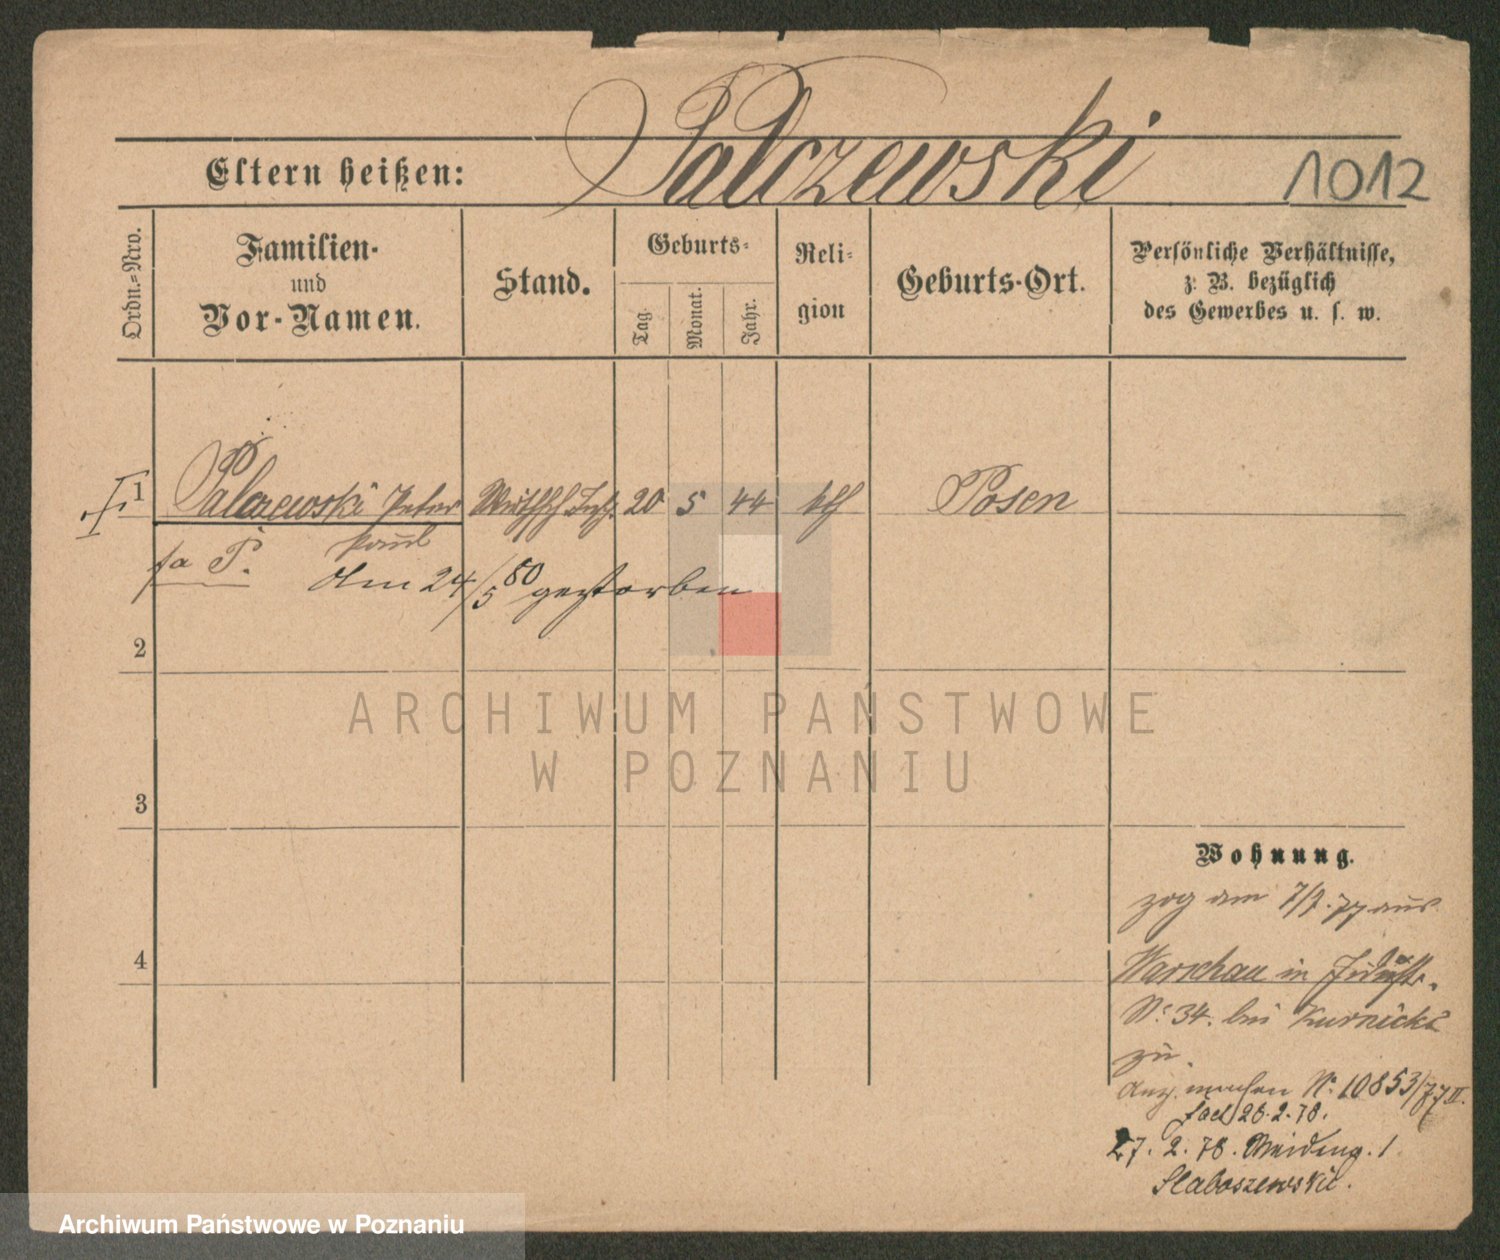 Palczewski
Eltern heißen:
1012
Ordn.=Nro.
Familien-
und
Vor-Namen.
Stand.
Geburts-
Tag.
Monat.
Jahr.
Reli-
gion
Geburts-Ort.
Persönliche Verhältnisse,
z. B. bezüglich
des Gewerbes u. s. w.
1 Palczewski Peter 20 5 44 kth Posen
Paul
fa P. Am 24/5 80 gestorben
2
ARCHIWUM PAŃSTWOWE
W POZNANIU
3
Wohnung.
zog am 7/7. 77 aus
4
Warschau in
No 34. bei Kurnicki
zu.
No 10853/77 II.
26.2.78.
27. 2. 78. 1
Slaboszewski.
Archiwum Państwowe w Poznaniu